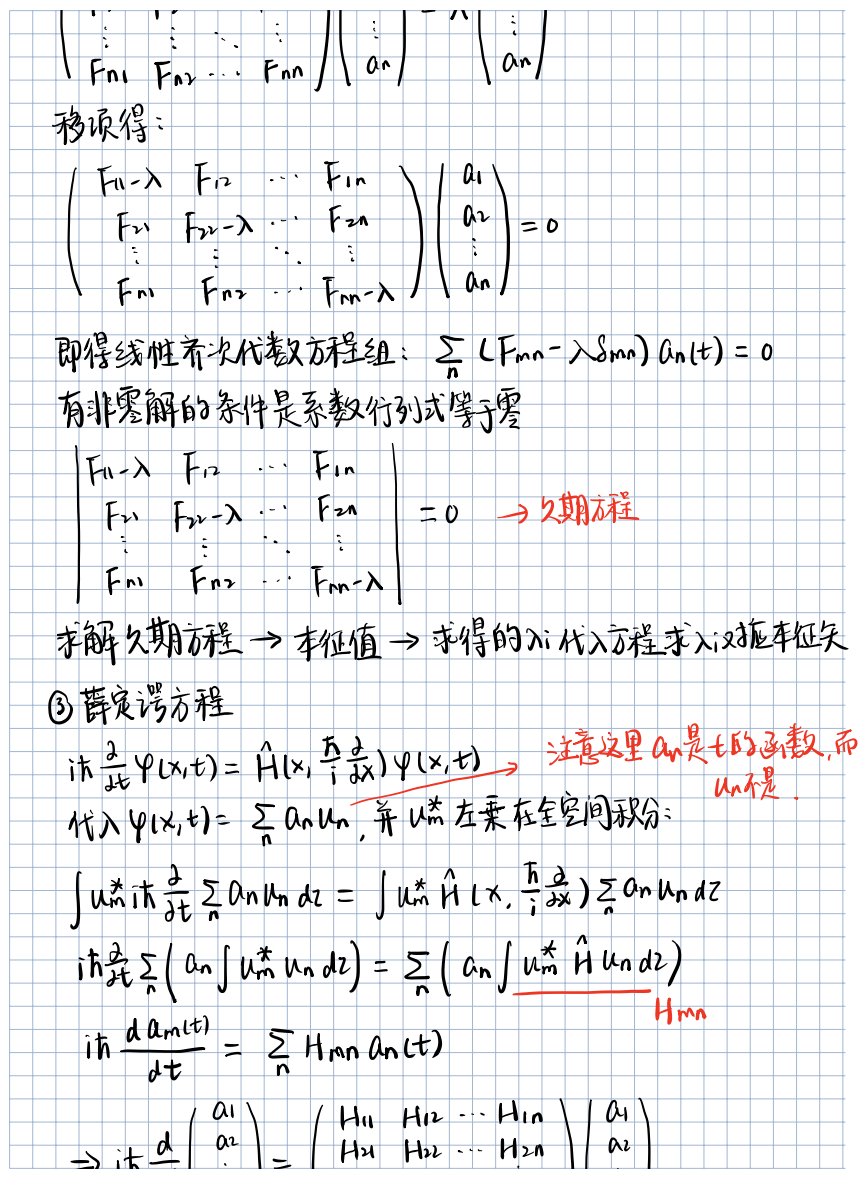 ( ⋮ ⋮ ⋱ ⋮ ) ( ⋮ ) = λ ( ⋮ )
Fn1 Fn2 ⋯ Fnn an an
移项得：
( F11-λ F12 ⋯ F1n ) ( a1 )
F21 F22-λ ⋯ F2n a2 = 0
⋮ ⋮ ⋱ ⋮ ⋮
Fn1 Fn2 ⋯ Fnn-λ an
即得线性齐次代数方程组： ∑n (Fmn - λδmn) an(t) = 0
有非零解的条件是系数行列式等于零
| F11-λ F12 ⋯ F1n |
F21 F22-λ ⋯ F2n = 0 → 久期方程
⋮ ⋮ ⋱ ⋮
Fn1 Fn2 ⋯ Fnn-λ
求解久期方程 → 本征值 → 求得的λi代入方程求λi对应本征矢
③ 薛定谔方程
iħ ∂/∂t ψ(x,t) = Ĥ(x, ħ/i ∂/∂x) ψ(x,t)
注意这里 an是t的函数,而
un不是.
代入 ψ(x,t) = ∑n an un , 并 um* 左乘在全空间积分：
∫ um* iħ ∂/∂t ∑n an un dz = ∫ um* Ĥ (x, ħ/i ∂/∂x) ∑n an un dz
iħ ∂/∂t ∑n ( an ∫ um* un dz ) = ∑n ( an ∫ um* Ĥ un dz )
Hmn
iħ dam(t)/dt = ∑n Hmn an(t)
( a1 ) ( H11 H12 ⋯ H1n ) ( a1 )
⇒ iħ d a2 = H21 H22 ⋯ H2n a2